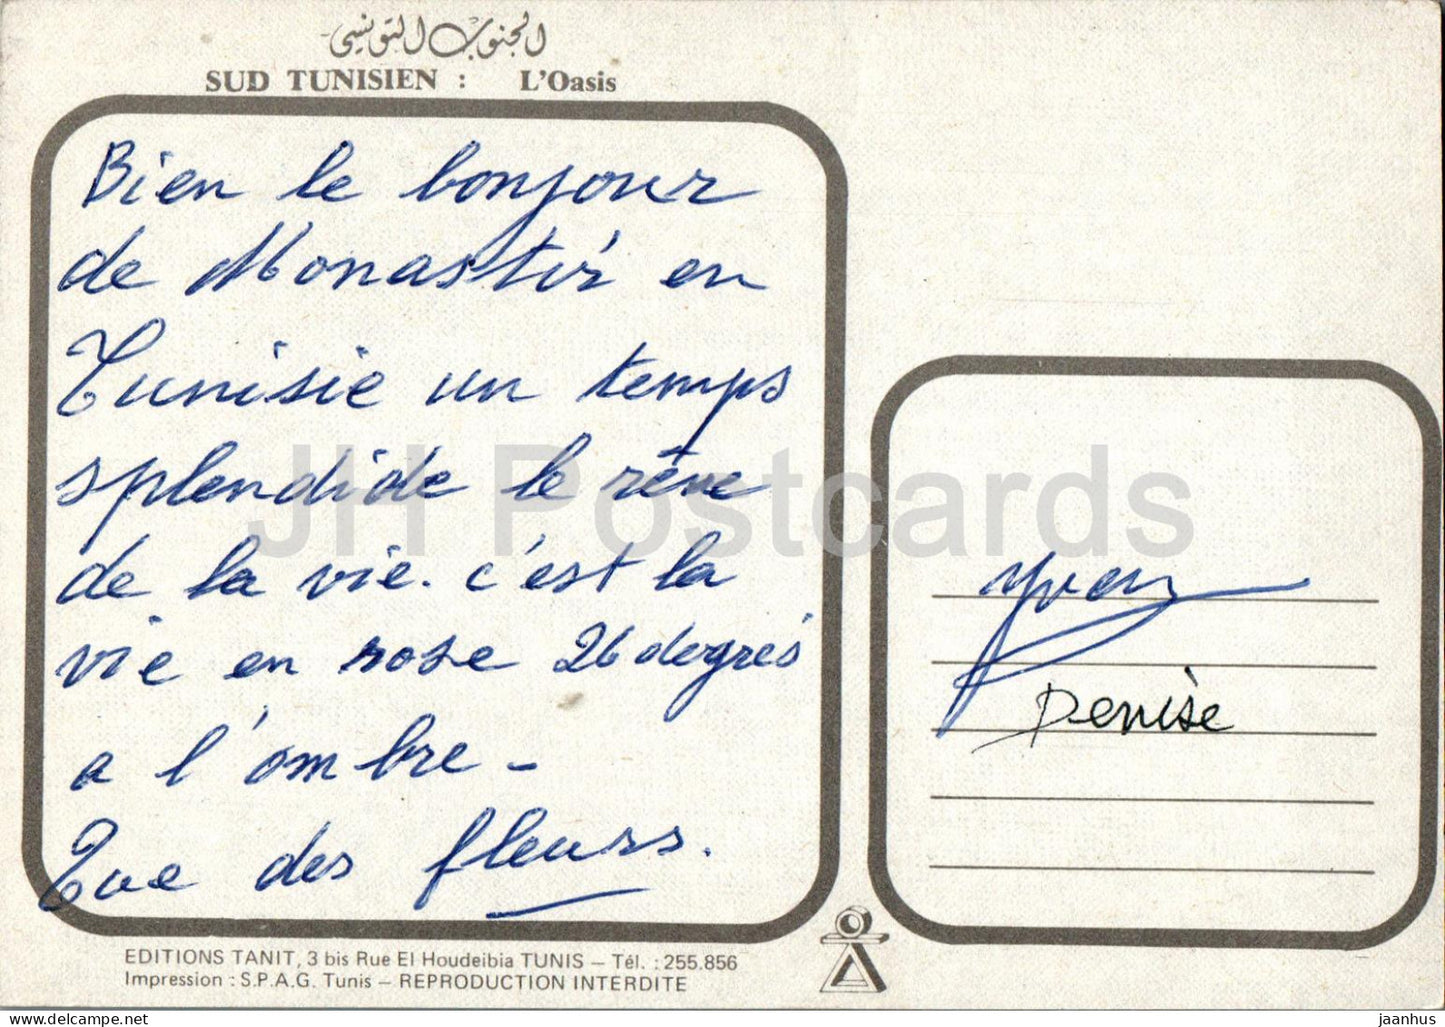 الجنوب التونسي
SUD TUNISIEN : L'Oasis
Bien le bonjour
de Monastir en
Tunisie un temps
splendide le rêve
de la vie. c'est la
vie en rose 26 degrés
a l'ombre -
Que des fleurs.
Yvon
Denise
EDITIONS TANIT, 3 bis Rue El Houdeibia TUNIS – Tél. : 255.856
Impression : S.P.A.G. Tunis – REPRODUCTION INTERDITE
JH Postcards
www.delcampe.net
jaanhus